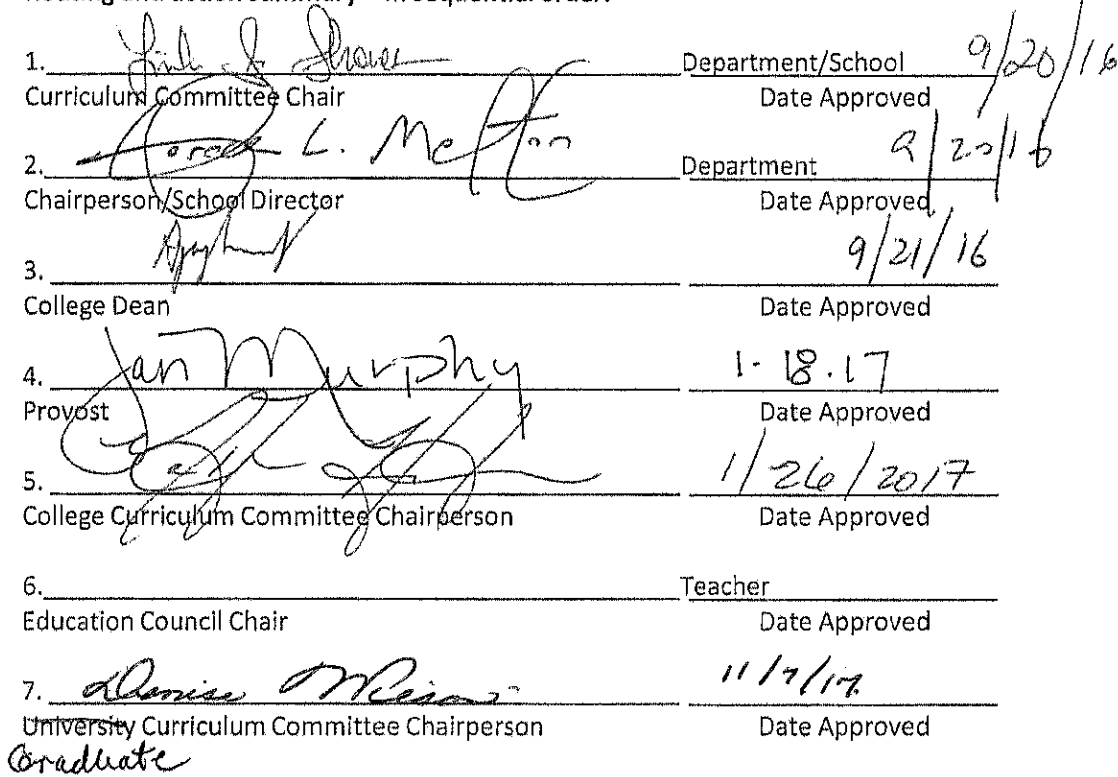 1. Department/School 9/20/16
Curriculum Committee Chair Date Approved
2. L. Melton Department 9/20/16
Chairperson/School Director Date Approved
3. 9/21/16
College Dean Date Approved
4. Jan Murphy 1-18.17
Provost Date Approved
5. 1/26/2017
College Curriculum Committee Chairperson Date Approved
6. Teacher
Education Council Chair Date Approved
7. Denise 11/7/17
University Curriculum Committee Chairperson Date Approved
Graduate